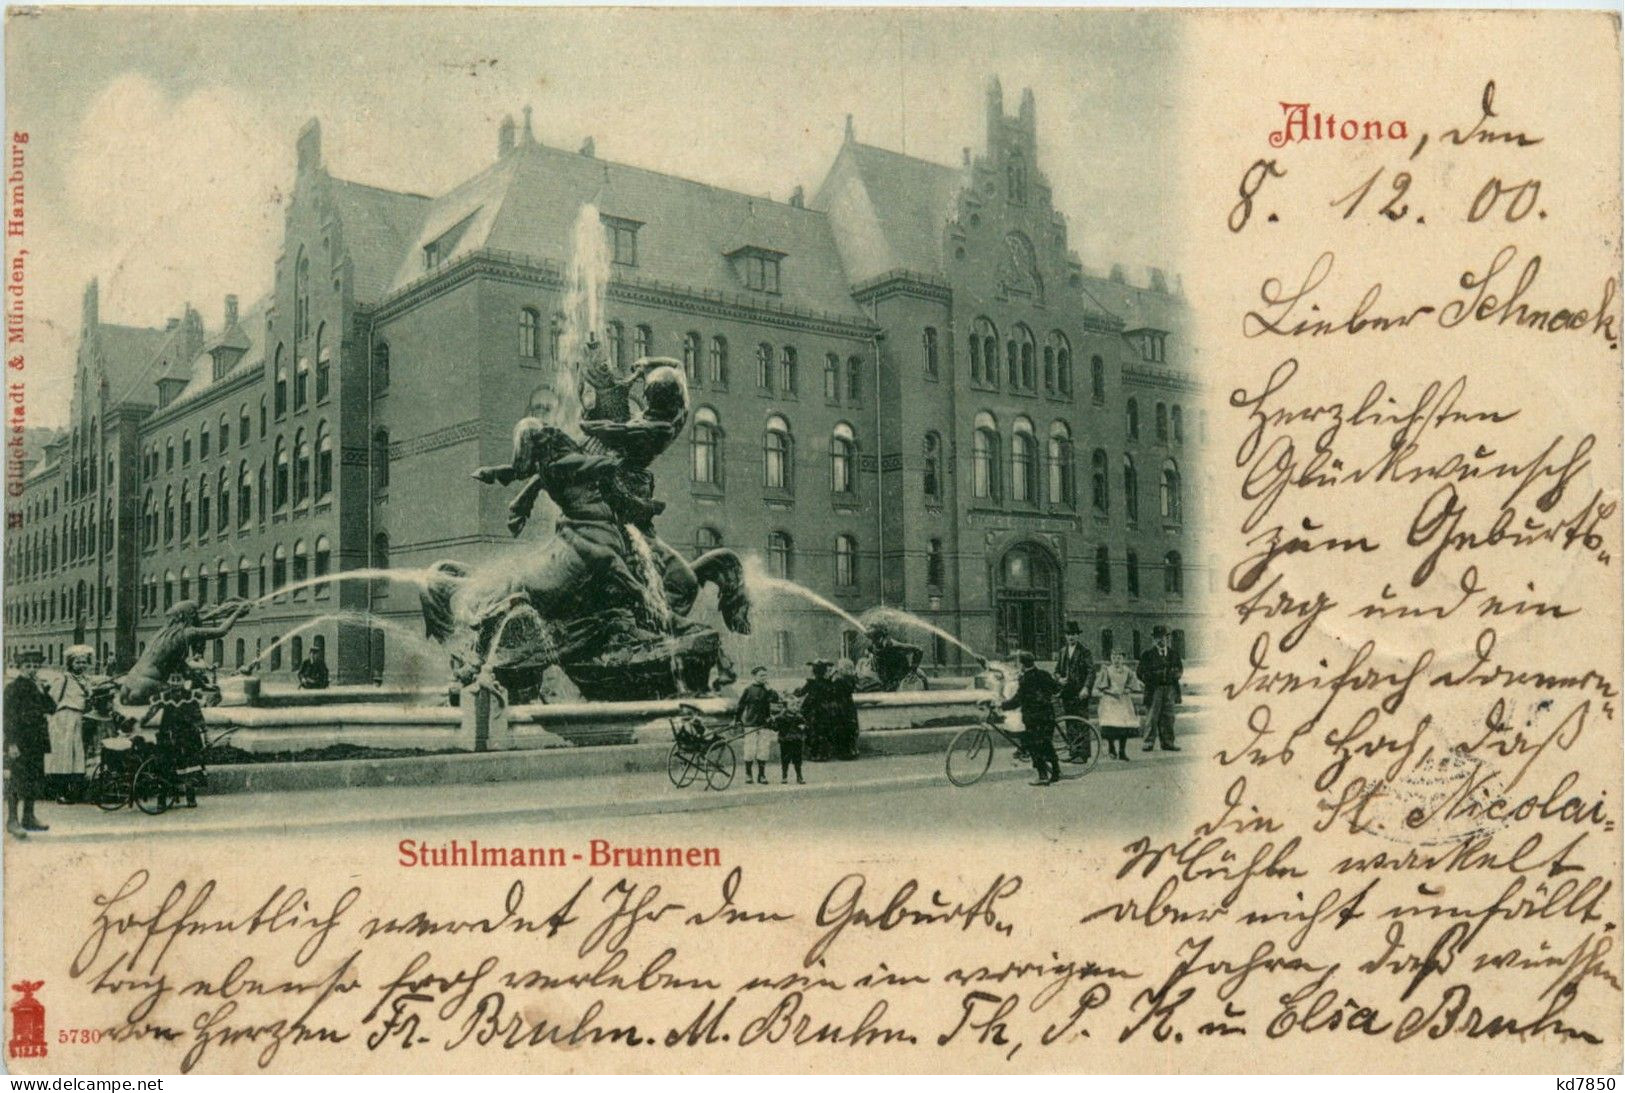 M. Glückstadt & Münden, Hamburg
Altona, den
8. 12. 00.
Lieber Schnack.
Herzlichsten
Glückwunsch
zum Geburts„
tag und ein
dreifach donnern„
des Hoch, daß
die St. Nicolai-
Mühle wackelt
aber nicht umfällt.
Stuhlmann-Brunnen
Hoffentlich werdet Ihr den Geburts„
tag ebenso froh verleben wie im vorigen Jahre, daß wünschen
5730 von Herzen Fr. Bruhn. M. Bruhn. Th, P. K. u Elsa Bruhn
delcampe.net
kd7850